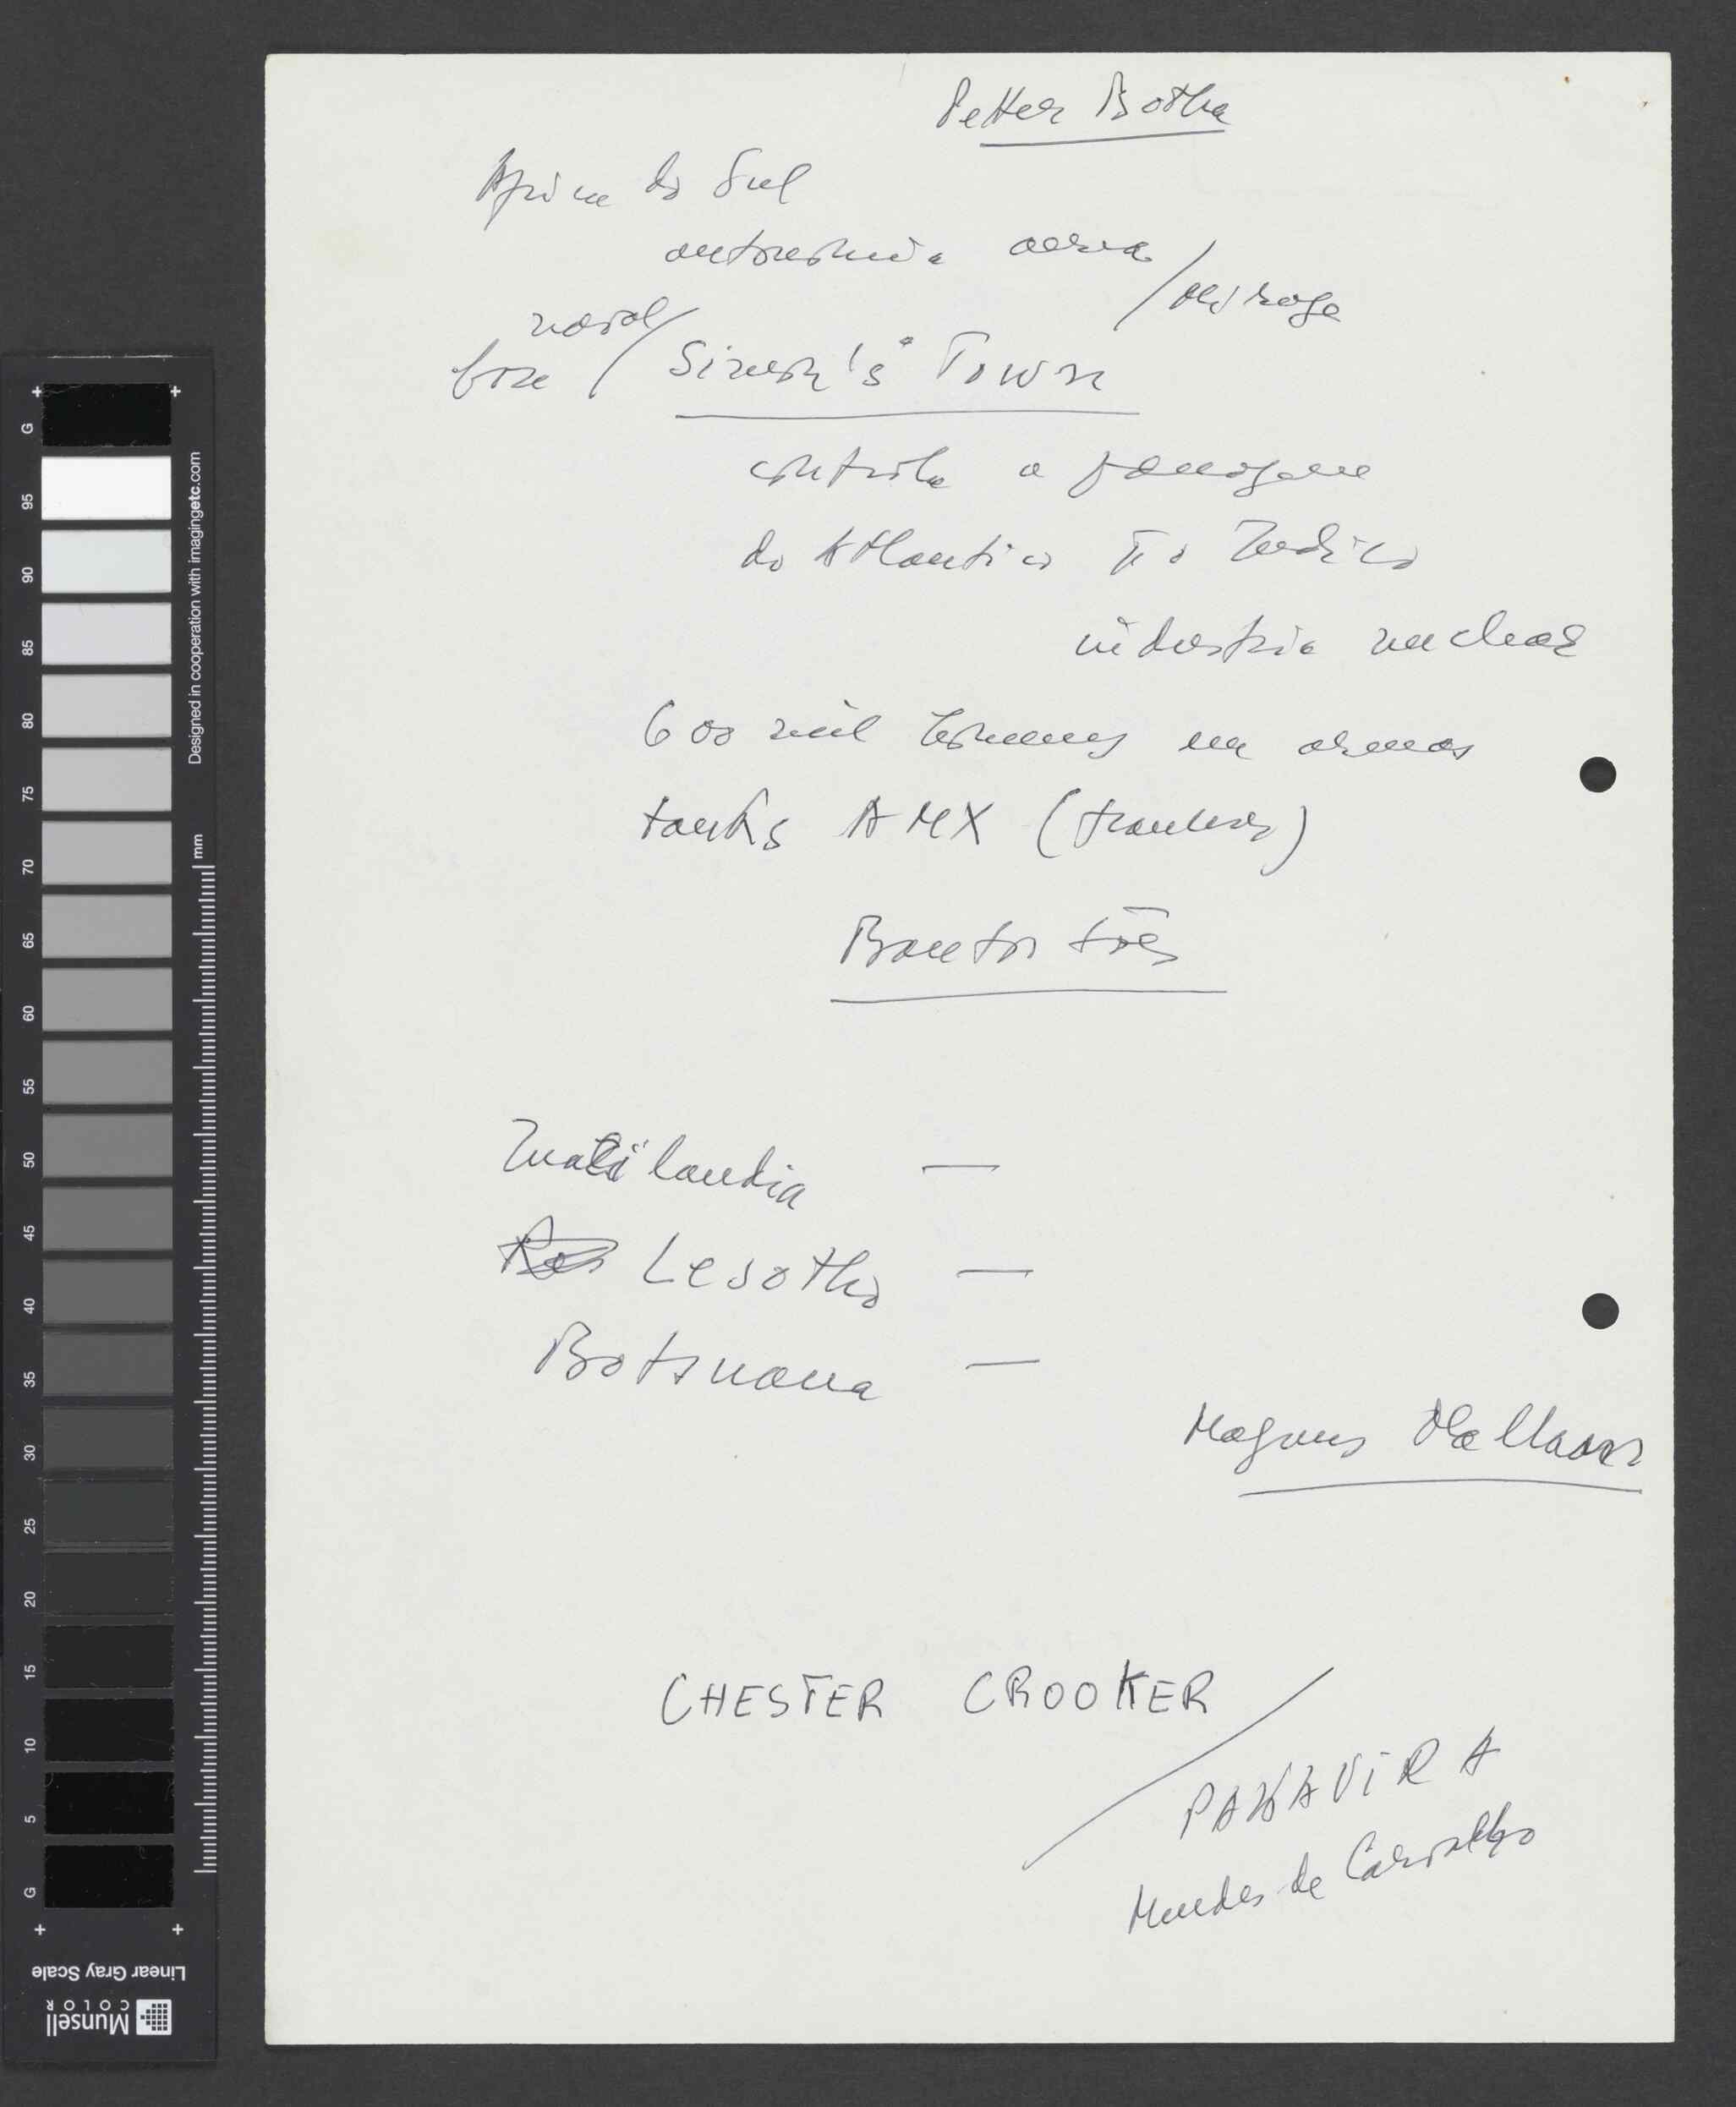 Petter Botha
Africa do Sul
autonomia aerea / Mirage
naval
base / Simon's Town
controla a passagem
do Atlantico p.o Indico
industria nuclear
600 mil homens em armas
tanks AMX (franceses)
Bantustões
Suazilandia —
Lesotho —
Botsuana —
Magnus Mallaan
CHESTER CROOKER
PAKAVIRA
Mendes de Carvalho
G
95
90
85
80
75
70
65
60
55
50
45
40
35
30
25
20
15
10
5
G
mm
Designed in cooperation with imagingetc.com
Linear Gray Scale
Munsell
COLOR